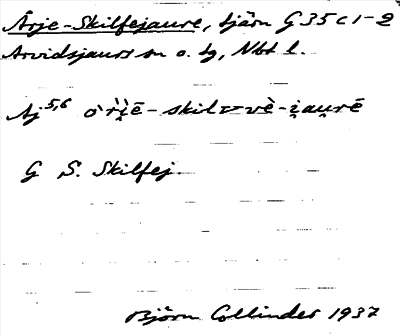 Årje-Skilfejaure, tjärn G 35 c 1-2
Arvidsjaurs sn o. tg, Nbt l.
Aj 5,6 o̍r̀i̯ē - skil=vè - i̯au̯rē
G S. Skilfej.
Björn Collinder 1937